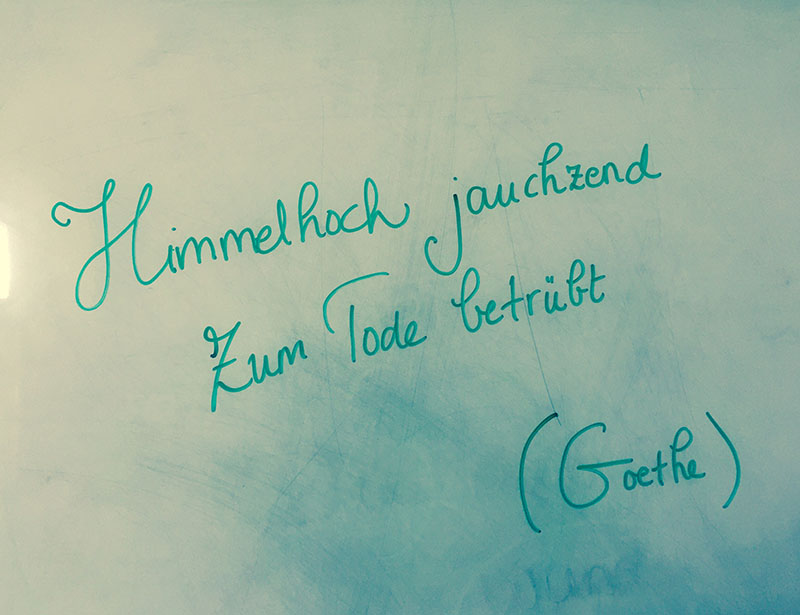 Himmelhoch jauchzend
Zum Tode betrübt
(Goethe)